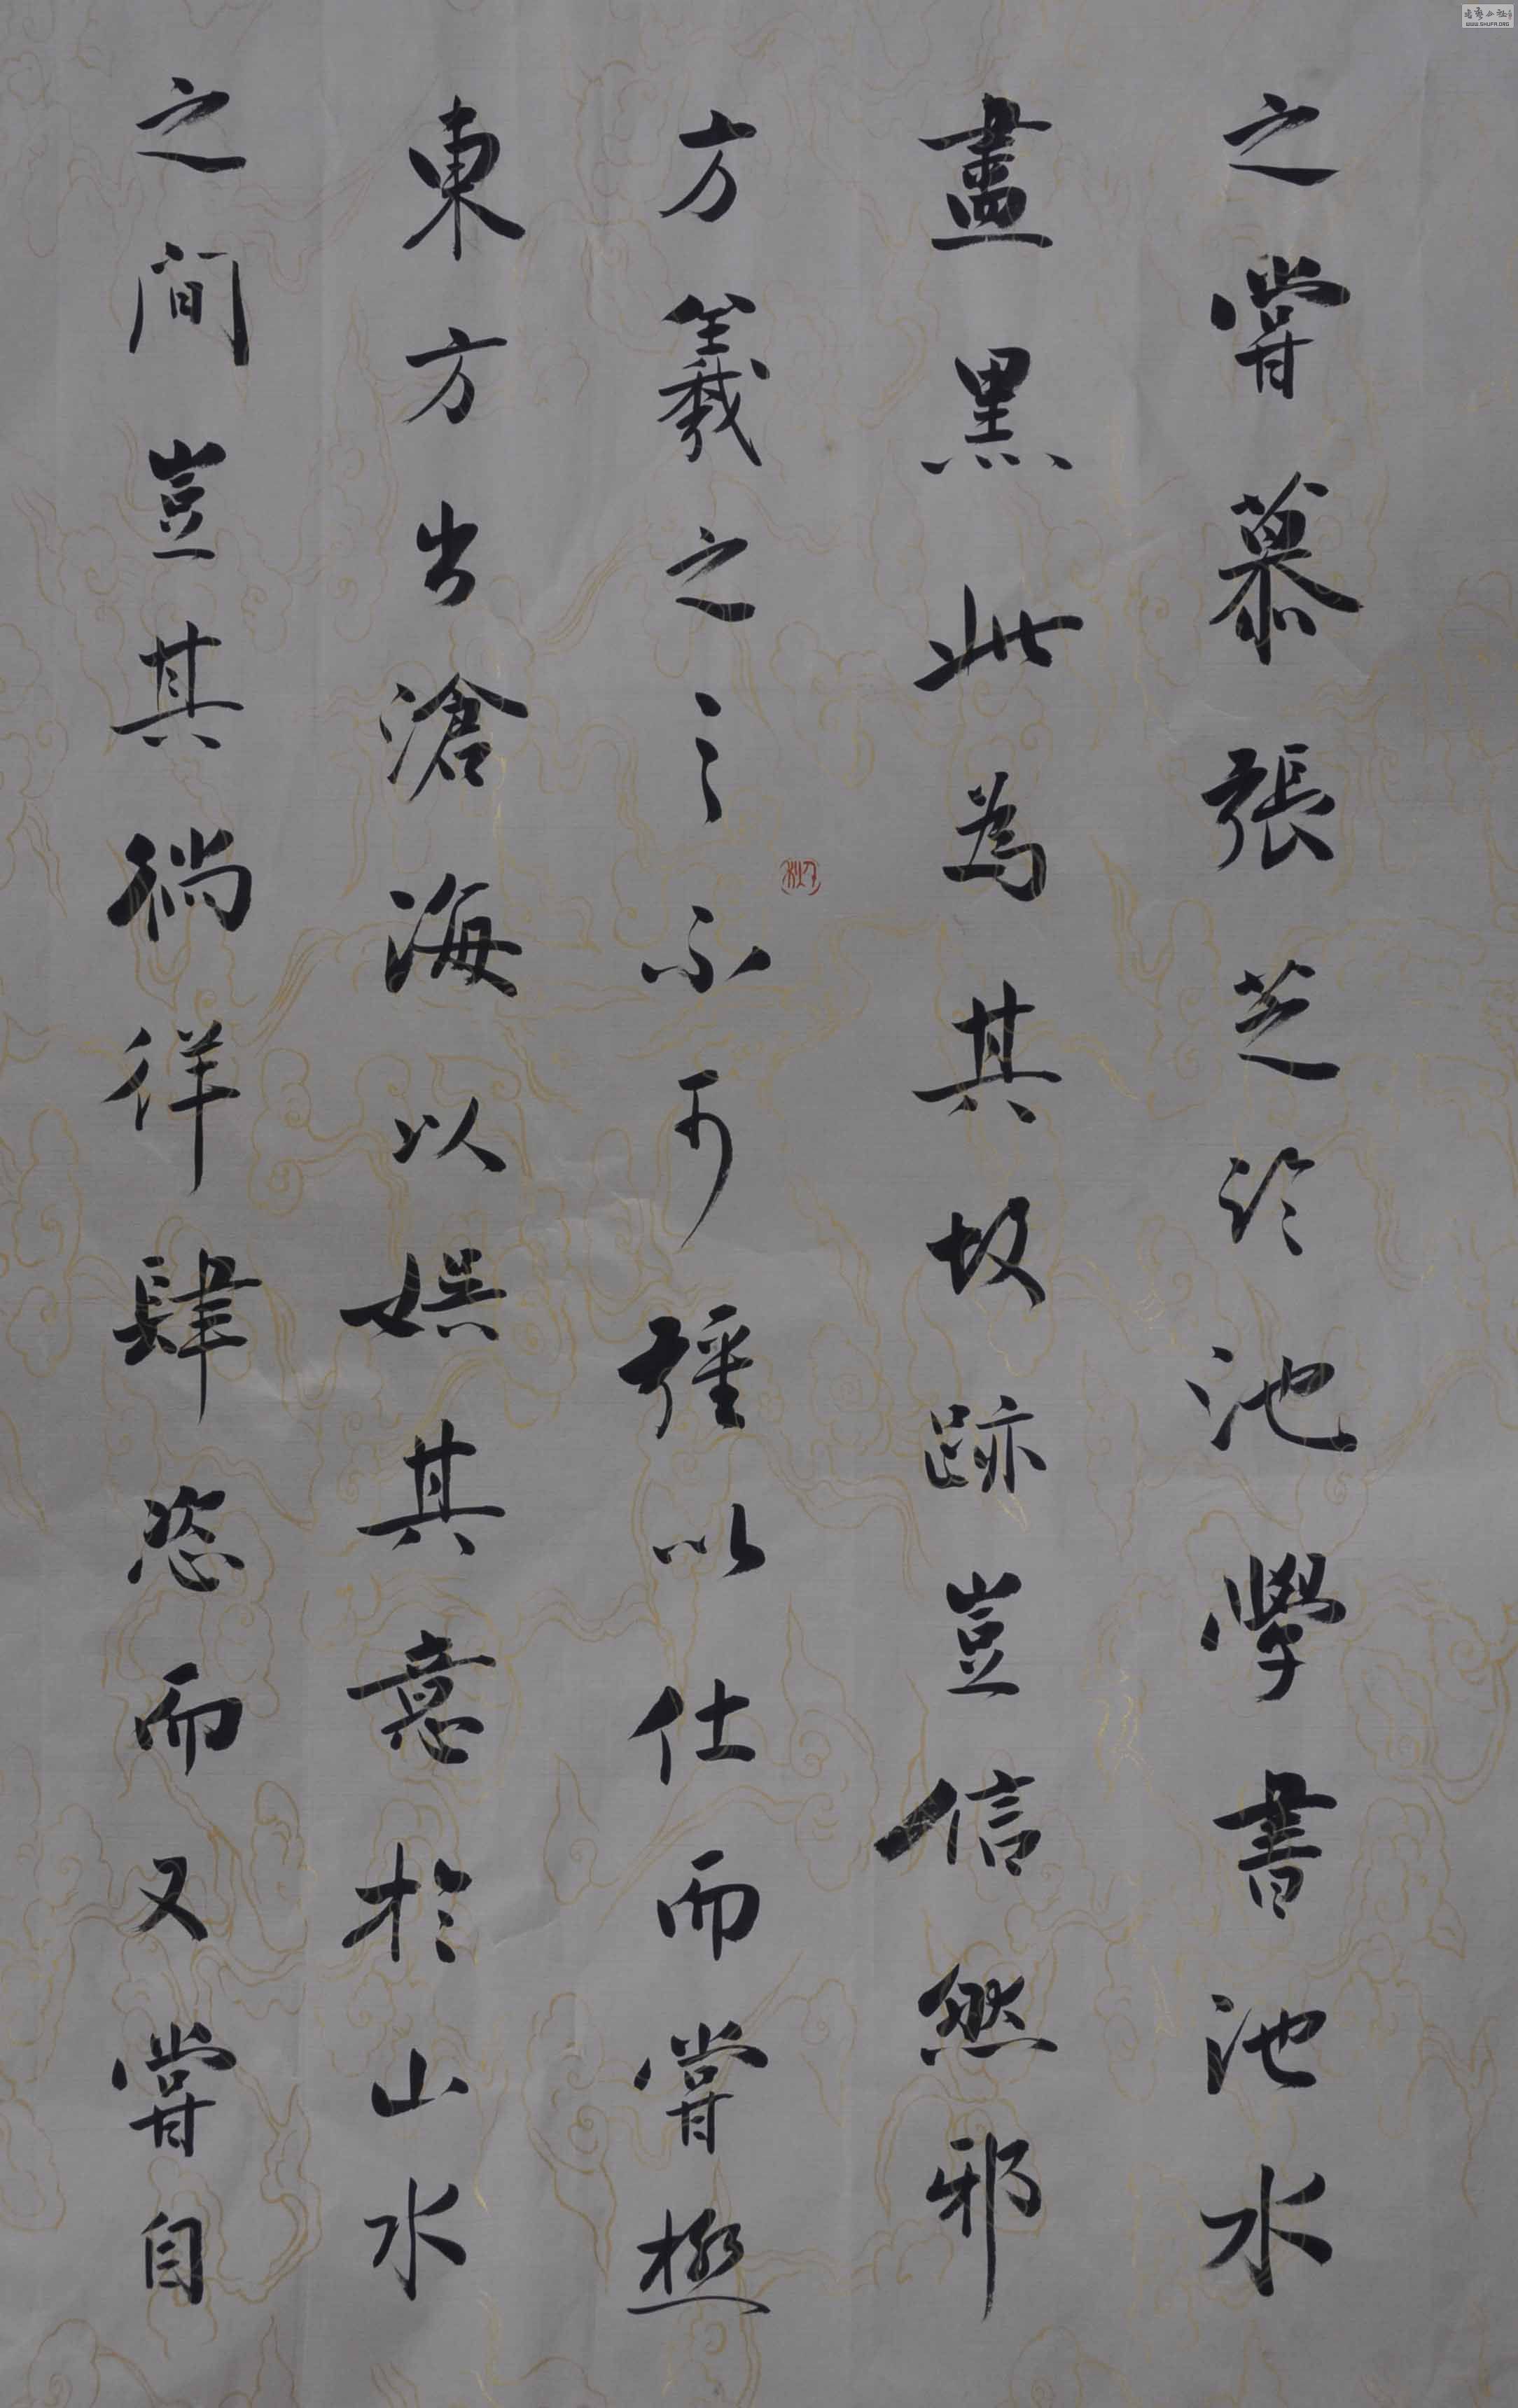 之嘗慕張芝於池學書池水
盡黑此為其故跡豈信然邪
方羲之之不可彊以仕而嘗極
東方出滄海以娛其意於山水
之間豈其徜徉肆恣而又嘗自
WWW.SHUFA.ORG